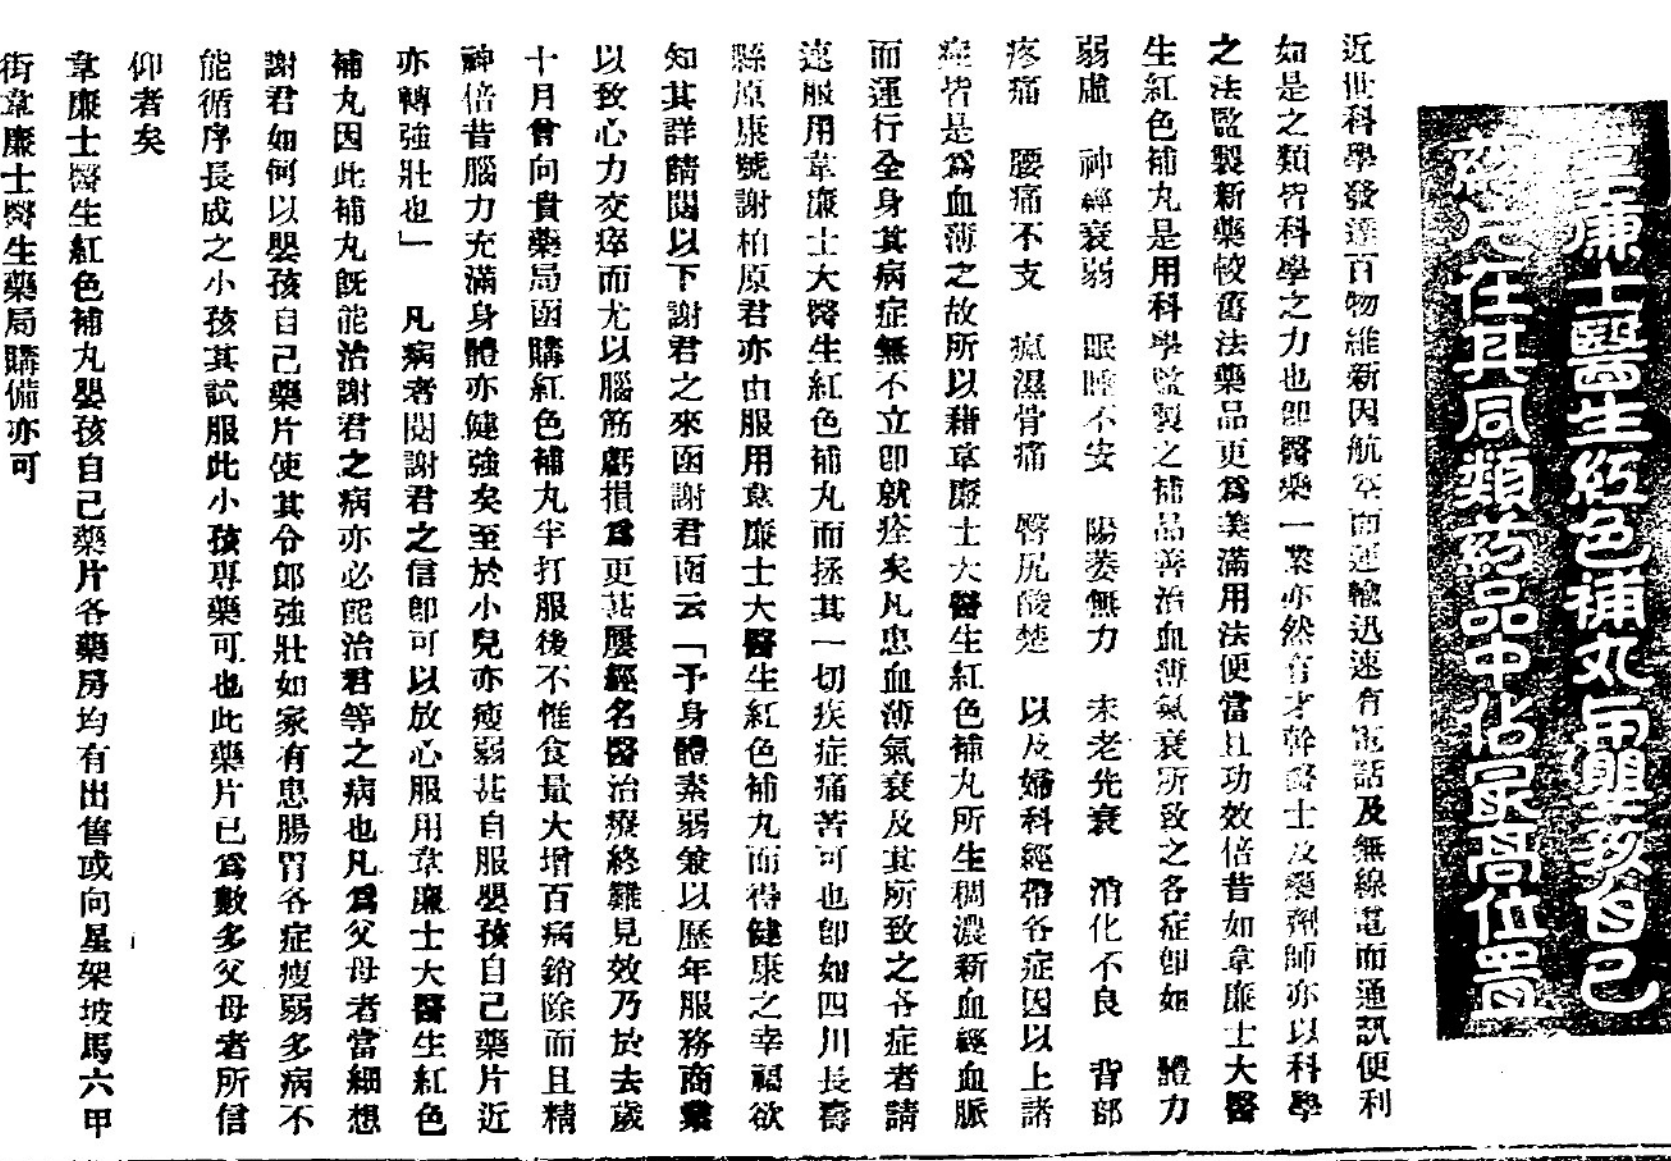 韋廉士醫生紅色補丸而嬰孩自己
藥片在其同類葯品中佔最高位置
近世科學發達百物維新因航空而運輸迅速有電話及無線電而通訊便利
如是之類皆科學之力也卽醫藥一業亦然有才幹醫士及藥劑師亦以科學
之法監製新藥較舊法藥品更爲美滿用法便當且功效倍昔如韋廉士大醫
生紅色補丸是用科學監製之補品善治血薄氣衰所致之各症卽如 體力
弱虛 神經衰弱 眠睡不安 陽萎無力 未老先衰 消化不良 背部
疼痛 腰痛不支 瘋濕骨痛 臀尻酸楚 以及婦科經帶各症因以上諸
症皆是爲血薄之故所以藉韋廉士大醫生紅色補丸所生稠濃新血經血脈
而運行全身其病症無不立卽就痊矣凡患血薄氣衰及其所致之各症者請
速服用韋廉士大醫生紅色補丸而拯其一切疾症痛苦可也卽如四川長壽
縣原康號謝柏原君亦由服用韋廉士大醫生紅色補丸而得健康之幸福欲
知其詳請閱以下謝君之來函謝君函云「予身體素弱兼以歷年服務商業
以致心力交瘁而尤以腦筋虧損爲更甚屢經名醫治療終難見效乃於去歲
十月曾向貴藥局函購紅色補丸半打服後不惟食量大增百病銷除而且精
神倍昔腦力充滿身體亦健強矣至於小兒亦瘦弱甚自服嬰孩自己藥片近
亦轉強壯也」 凡病者閱謝君之信卽可以放心服用韋廉士大醫生紅色
補丸因此補丸旣能治謝君之病亦必能治君等之病也凡爲父母者當細想
謝君如何以嬰孩自己藥片使其令郎強壯如家有患腸胃各症瘦弱多病不
能循序長成之小孩其試服此小孩專藥可也此藥片已爲數多父母者所信
仰者矣
韋廉士醫生紅色補丸嬰孩自己藥片各藥房均有出售或向星架坡馬六甲
街韋廉士醫生藥局購備亦可